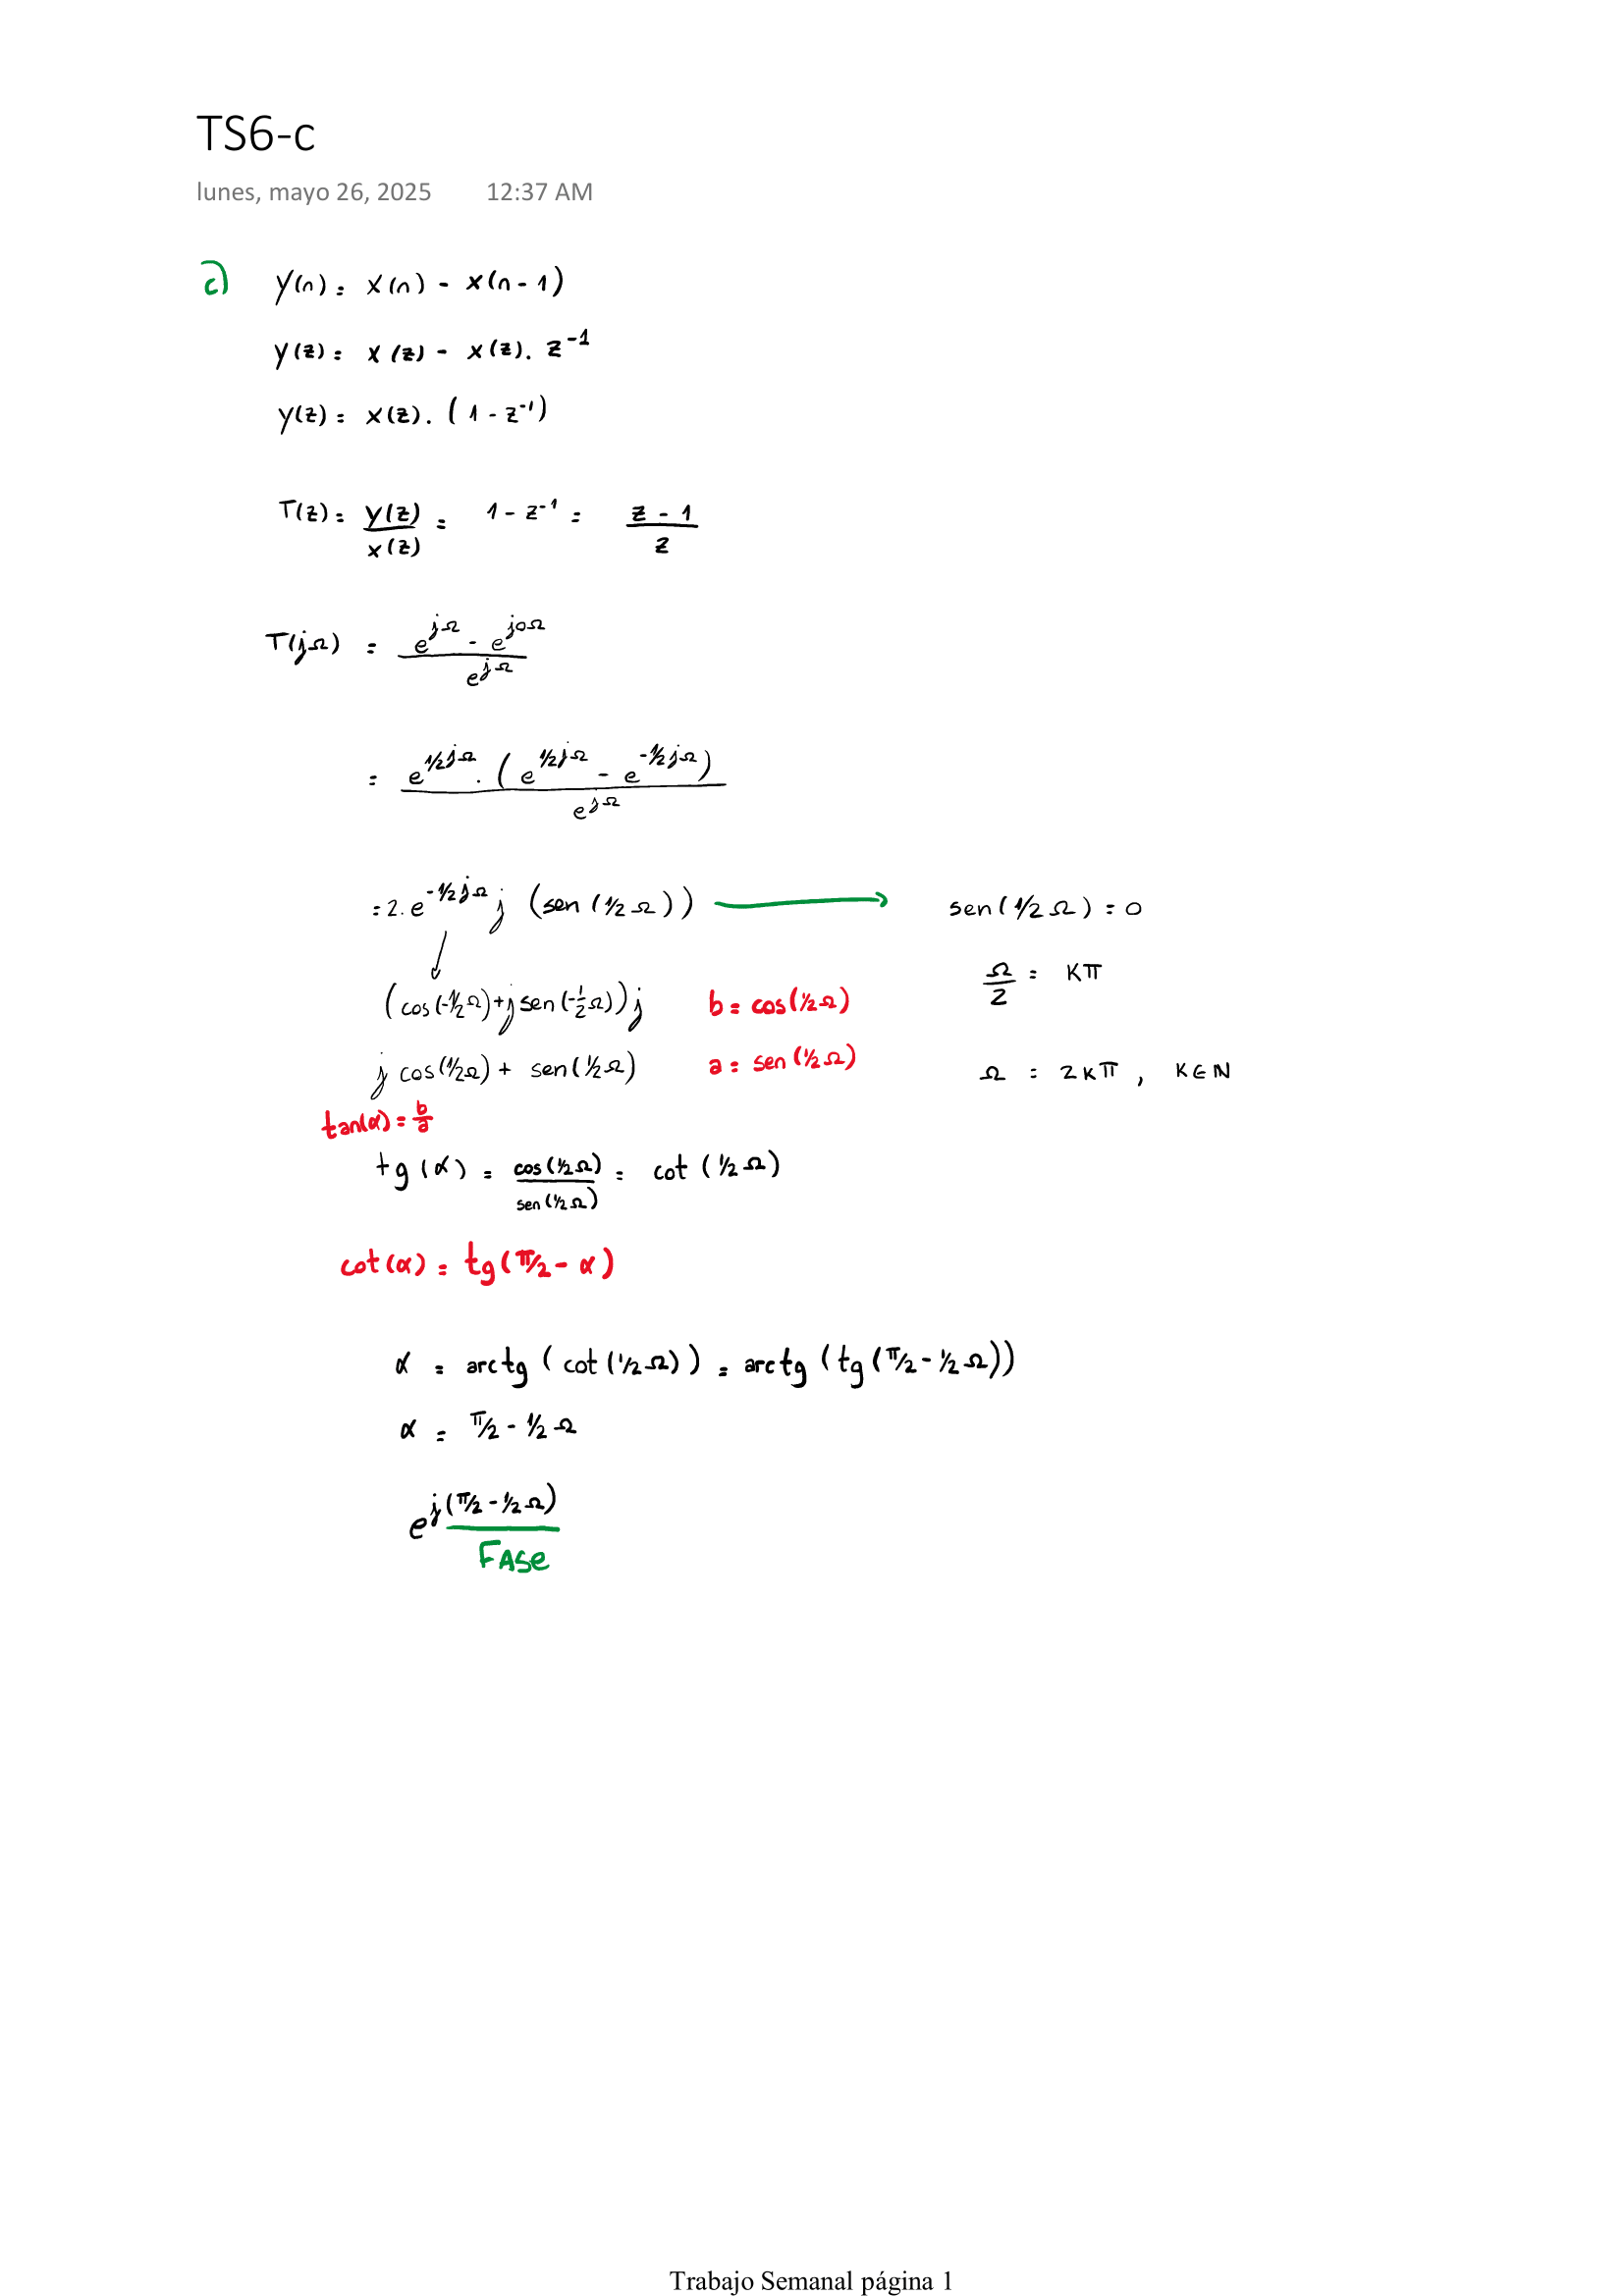 TS6-c
lunes, mayo 26, 2025 12:37 AM
c) y(n) = x(n) - x(n-1)
y(z) = x(z) - x(z). z^-1
y(z) = x(z). (1 - z^-1)
T(z) = y(z)/x(z) = 1 - z^-1 = (z - 1)/z
T(jΩ) = (e^jΩ - e^j0Ω)/e^jΩ
= (e^½jΩ . (e^½jΩ - e^-½jΩ))/e^jΩ
= 2. e^-½jΩ j (sen(½Ω)) → sen(½Ω) = 0
Ω/2 = Kπ
(cos(-½Ω) + j sen(-½Ω)) j b = cos(½Ω)
j cos(½Ω) + sen(½Ω) a = sen(½Ω) Ω = 2Kπ, K∈N
tan(α) = b/a
tg(α) = cos(½Ω)/sen(½Ω) = cot(½Ω)
cot(α) = tg(π/2 - α)
α = arctg(cot(½Ω)) = arctg(tg(π/2 - ½Ω))
α = π/2 - ½Ω
e^j(π/2 - ½Ω)
FASE
Trabajo Semanal página 1